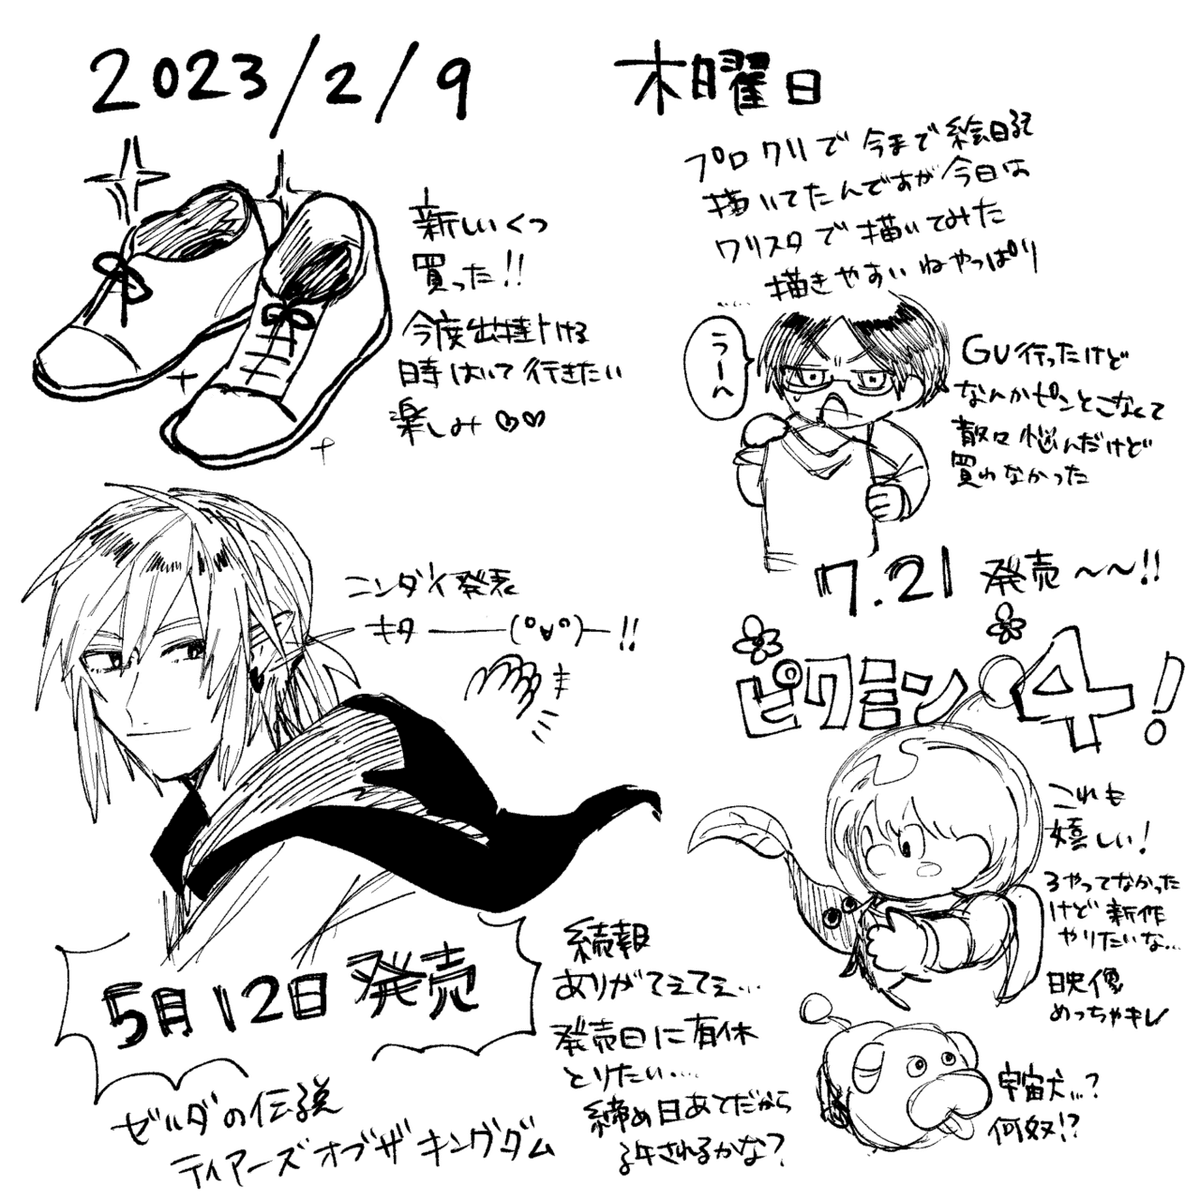 2023/2/9
木曜日
プロクリで今まで絵日記
描いてたんですが今日は
クリスタで描いてみた
描きやすいねやっぱり
新しいくつ
買った!!
今度出掛ける
時はいて行きたい
楽しみ♡♡
うーん
GU行ったけど
なんかピンとこなくて
散々悩んだけど
買わなかった
ニンダイ発表
キター――(°∀°)―!!
7.21 発売〜〜!!
ピクミン4!
これも
嬉しい!
3やってなかった
けど新作
やりたいな…
映像
めっちゃキレイ
宇宙犬…?
何奴!?
5月12日発売
ゼルダの伝説
ティアーズオブザキングダム
続報
ありがてぇてぇ…
発売日に有休
とりたい….
締め日あてだから
許されるかな?